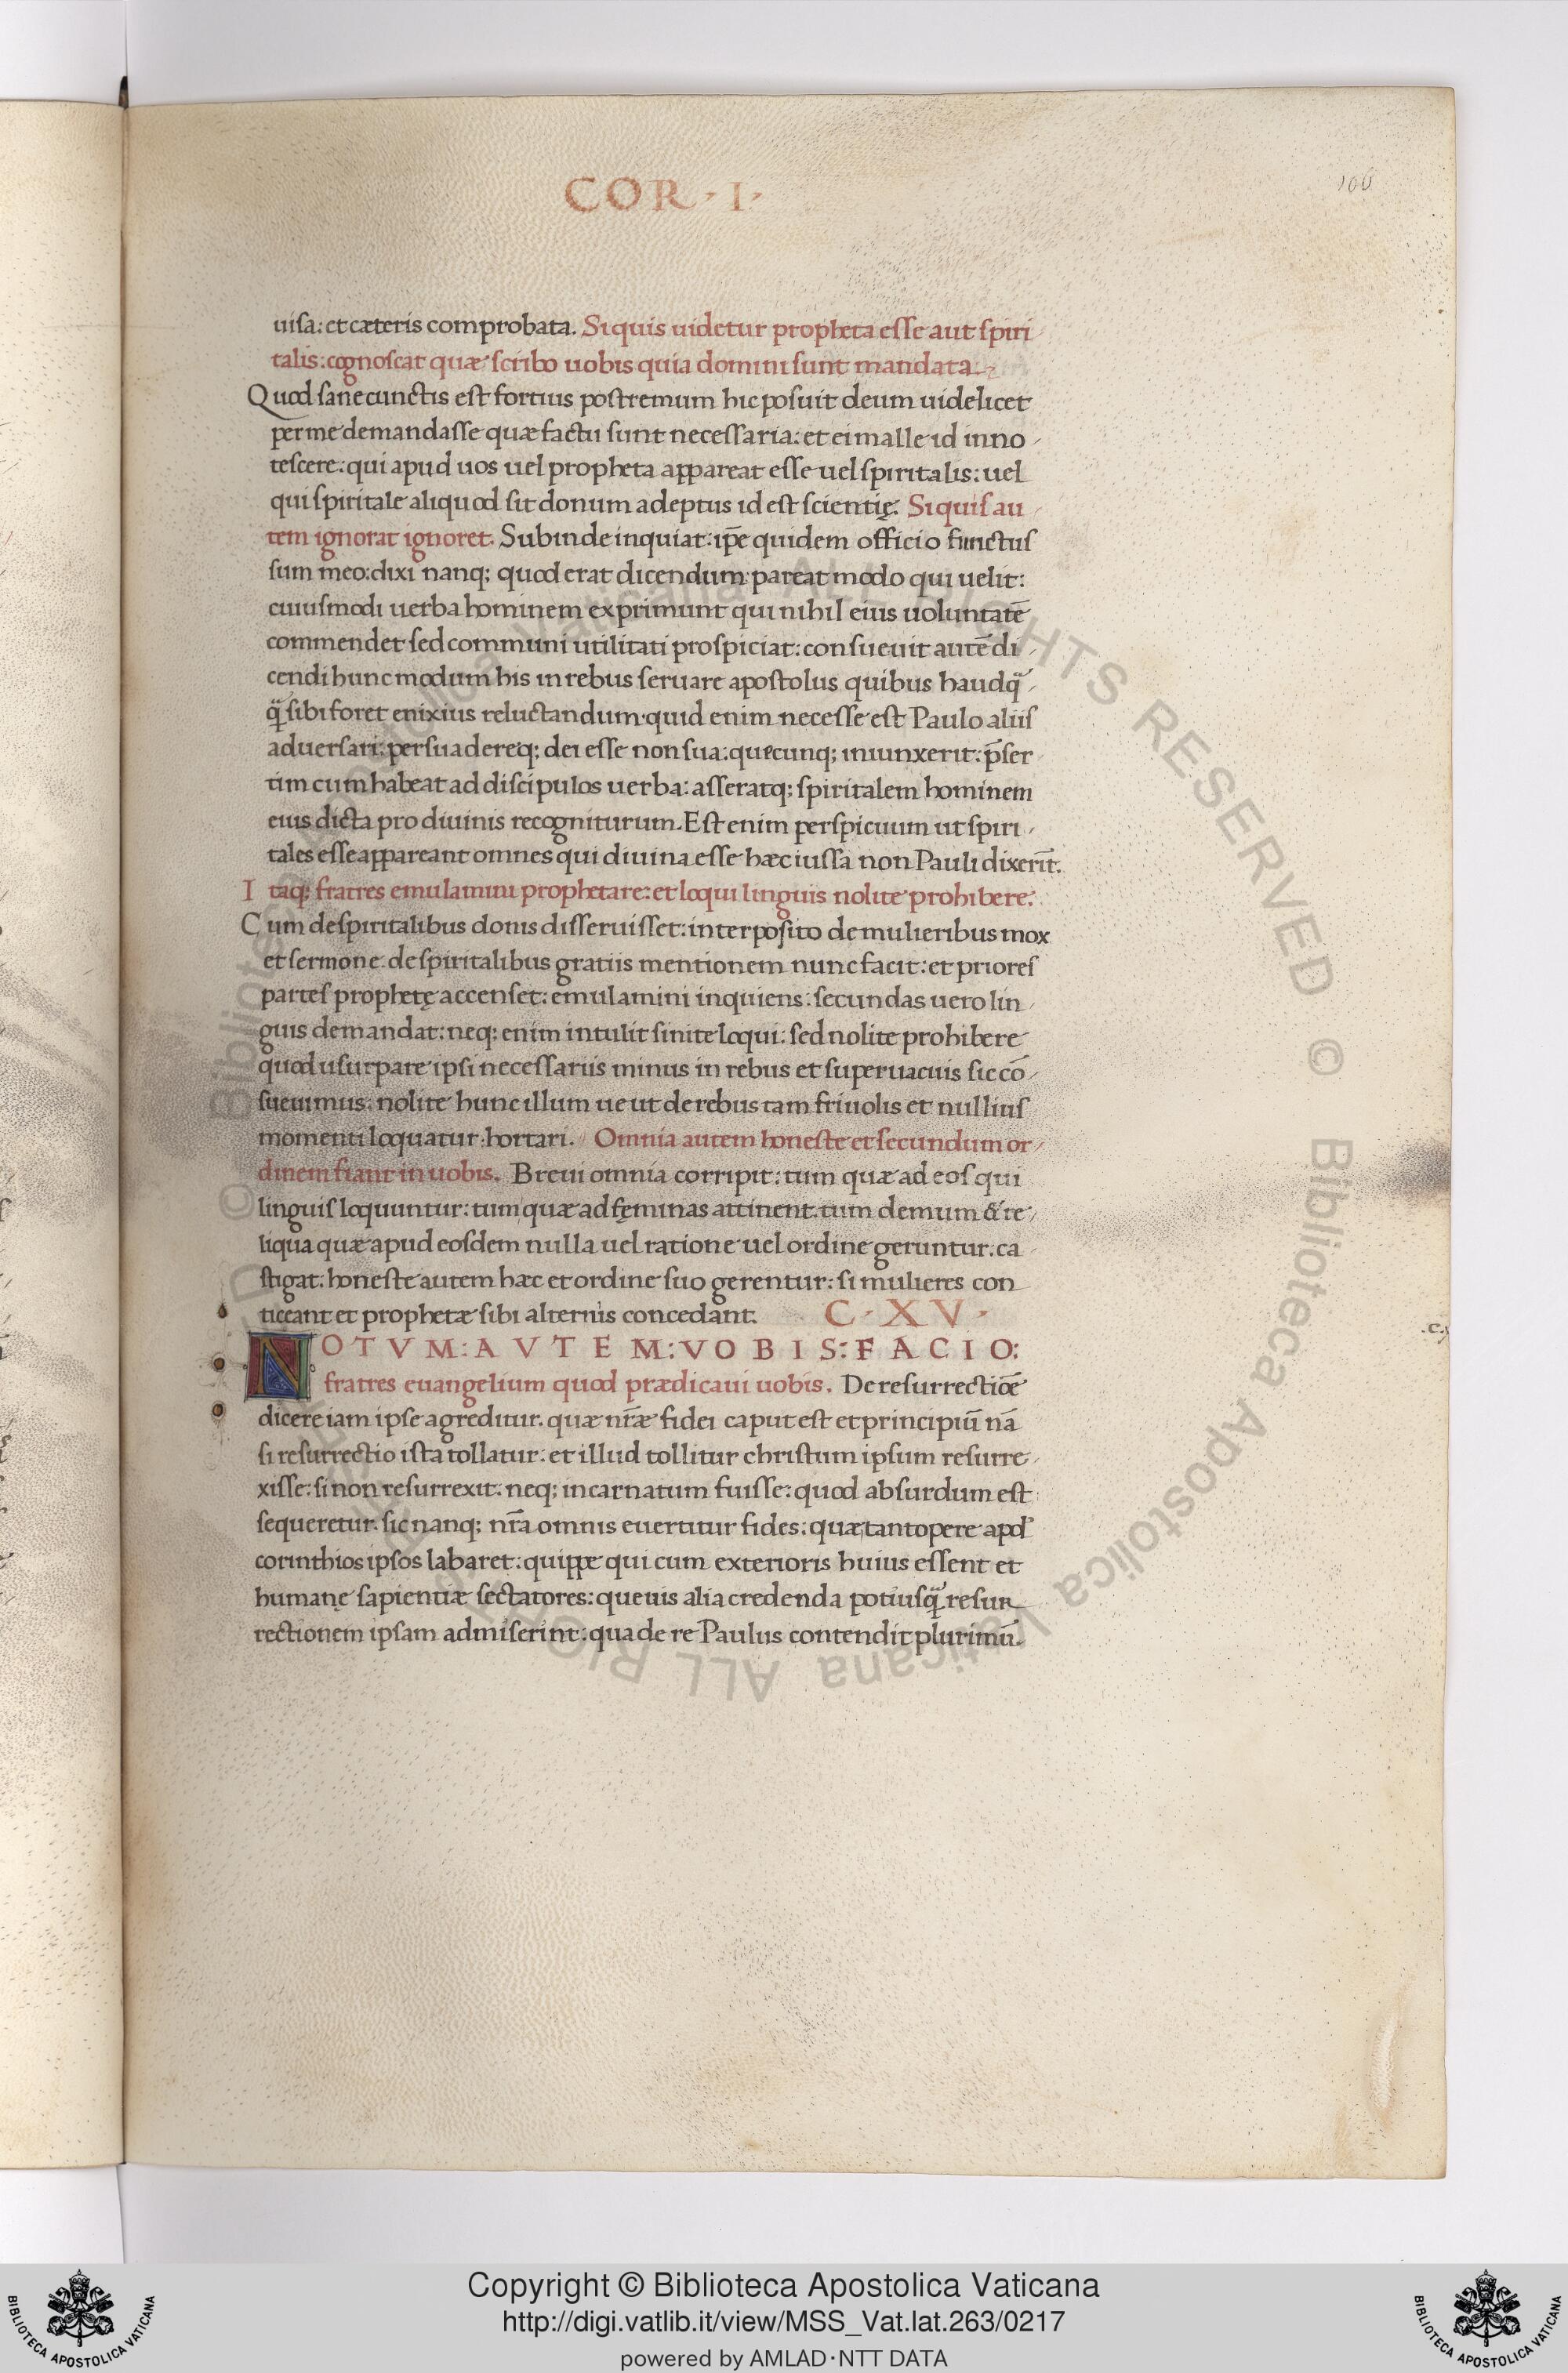 COR · I ·
106
uisa: et cæteris comprobata. Si quis uidetur propheta esse aut spiri
talis: cognoscat quæ scribo uobis quia domini sunt mandata.
Quod sane cunctis est fortius postremum hic posuit deum uidelicet
per me demandasse quæ factu sunt necessaria: et ei malle id inno
tescere: qui apud uos uel propheta appareat esse uel spiritalis: uel
qui spiritale aliquod sit donum adeptus id est scientię. Si quis au
tem ignorat ignoret. Subinde inquiat: ip̄e quidem officio functus
sum meo: dixi nanq; quod erat dicendum: pareat modo qui uelit:
cuiusmodi uerba hominem exprimunt qui nihil eius uoluntatē
commendet sed communi utilitati prospiciat: consueuit autē di
cendi hunc modum his in rebus seruare apostolus quibus haudq̃
q̃ sibi foret enixius reluctandum. quid enim necesse est Paulo aliis
aduersari: persuadereq; dei esse non sua: quecunq; iniunxerit: p̄ser
tim cum habeat ad discipulos uerba: asseratq; spiritalem hominem
eius dicta pro diuinis recogniturum. Est enim perspicuum ut spiri
tales esse appareant omnes qui diuina esse hæc iussa non Pauli dixerīt.
Itaq; fratres emulamini prophetare: et loqui linguis nolite prohibere.
Cum de spiritalibus donis disseruisset: interposito de mulieribus mox
et sermone de spiritalibus gratiis mentionem nunc facit: et priores
partes prophetę accenset: emulamini inquiens: secundas uero lin
guis demandat: neq; enim intulit sinite loqui: sed nolite prohibere
quod usurpare ipsi necessariis minus in rebus et superuacuis sic cō
sueuimus: nolite hunc illum ue ut de rebus tam friuolis et nullius
momenti loquatur hortari. Omnia autem honeste et secundum or
dinem fiant in uobis. Breui omnia corripit: tum quæ ad eos qui
linguis loquuntur: tum quæ ad fęminas attinent. tum demum & re
liqua quæ apud eosdem nulla uel ratione uel ordine geruntur. ca
stigat: honeste autem hæc et ordine suo gerentur: si mulieres con
ticeant et prophetæ sibi alternis concedant. C · XV ·
NOTVM: AVTEM: VOBIS: FACIO:
fratres euangelium quod prædicaui uobis. De resurrectiōe
dicere iam ipse agreditur. quæ nr̄æ fidei caput est et principiū nā
si resurrectio ista tollatur: et illud tollitur christum ipsum resurre
xisse: si non resurrexit: neq; incarnatum fuisse: quod absurdum est
sequeretur. sic nanq; nr̄a omnis euertitur fides: quæ tantopere apd̄
corinthios ipsos labaret: quippe qui cum exterioris huius essent et
humanę sapientiæ sectatores: queuis alia credenda potiusq̃ resur
rectionem ipsam admiserint: qua de re Paulus contendit plurimū.
Copyright © Biblioteca Apostolica Vaticana
http://digi.vatlib.it/view/MSS_Vat.lat.263/0217
powered by AMLAD·NTT DATA